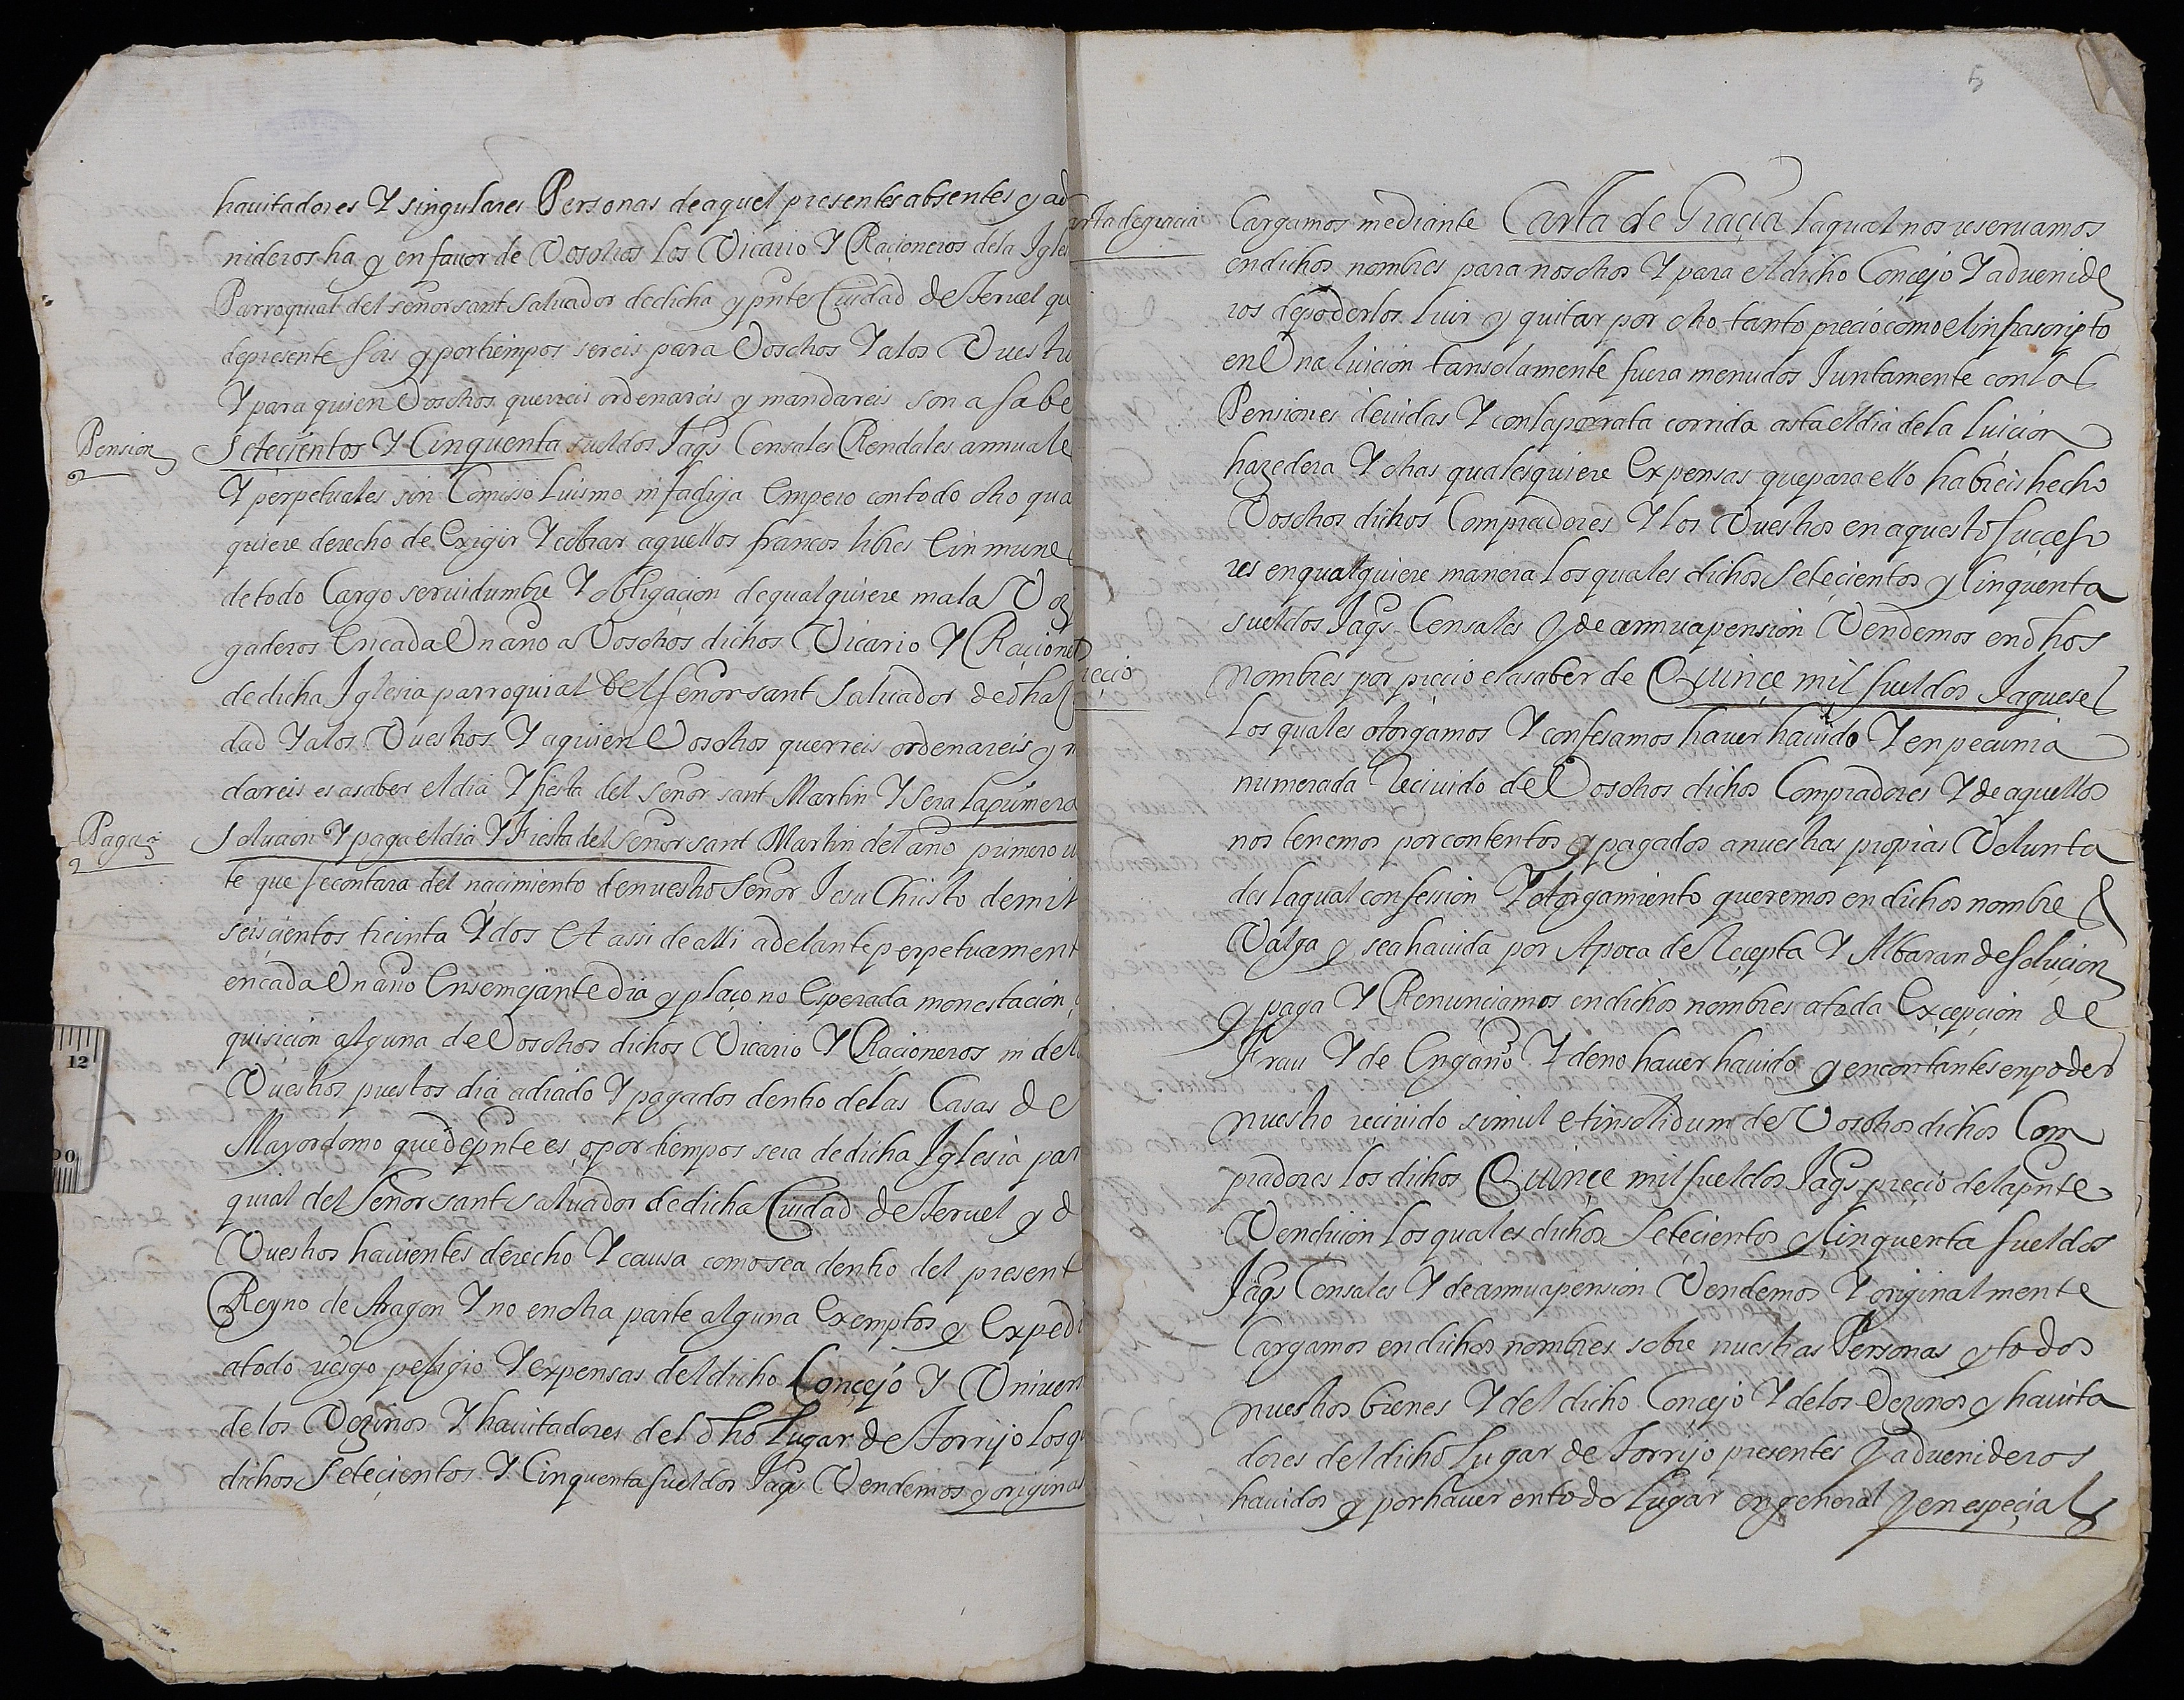 hauitadores Y singulares Personas de aquel presentes absentes y ad
nideros ha y en fauor de Vosotros los Vicario Y Racioneros de la Igles
Parroquial del señor sant Saluador de dicha y pnte Ciudad de Teruel qu
de presente sois y por tiempos sereis para Vosotros Y a los Vuestro
Y para quien Vosotros querreis ordenareis y mandareis son a sabe
Pension
Seteçientos Y Cinquenta sueldos Jaqs Censales Rendales annuale
Y perpetuales sin Comisso Luismo ni fadiga Empero con todo otro qua
quiere derecho de Exigir Y cobrar aquellos francos libres E inmune
de todo Cargo seruidumbre Y obligaçion de qualquiere mala Voz
gaderos En cada Un año a Vosotros dichos Vicario Y Raçione
de dicha Iglesia parroquial del señor sant Saluador de dha C
dad Y a los Vuestros Y a quien Vosotros querreis ordenareis y m
dareis es a saber el dia Y fiesta del señor sant Martin Y Sera la primera
Paga
Soluçion Y paga el dia Y Fiesta del señor sant Martin del año primero u
te que se contara del nacimiento de nuestro Señor Jesu Christo de mil
seiscientos treinta Y dos Et assi de alli adelante perpetuament
en cada Un año En semejante dia y plaço no Esperada monestaçion
quisiçion alguna de Vosotros dichos Vicario Y Racioneros ni de lo
Vuestros puestos dia adiado Y pagados dentro de las Casas de
Mayordomo que de pnte es o por tiempos sera de dicha Iglesia par
quial del Señor sant Saluador de dicha Ciudad de Teruel y d
Vuestros hauientes derecho Y causa como sea dentro del present
Reyno de Aragon Y no en otra parte alguna Exemptos y Expedi
a todo riesgo peligro Y expensas del dicho Conçejo Y Vniuers
de los Vezinos Y hauitadores del dho Lugar de Torrijo los q
dichos Seteçientos Y Cinquenta sueldos Jaqs Vendemos y origina
5
arta de gracia
Cargamos mediante Carta de Graçia la qual nos reseruamos
en dichos nombres para nosotros Y para el dicho Conçejo Y aduenide
ros de poderlos luir y quitar por otro tanto precio como el infrascripto
en Una luiçion tan solamente fuera menudos Juntamente con las
Pensiones deuidas Y con la porrata corrida asta el dia de la luiçion
hazedera Y otras qualesquiere Expensas que para ello habreis hecho
Vosotros dichos Compradores Y los Vuestros en aquesto suçceso
res en qualquiere manera los quales dichos Seteçientos y Cinquenta
sueldos Jaqs Censales Y de annua pension Vendemos en dhos
reçio
nombres por preçio es a saber de Quinçe mil sueldos Jaqueses
los quales otorgamos Y confesamos hauer hauido Y en pecunia
numerada Reciuido de Vosotros dichos Compradores Y de aquellos
nos tenemos por contentos y pagados a nuestras propias Volunta
des la qual confession Y otorgamiento queremos en dichos nombres
Valga y sea hauida por Apoca de Reçepta Y Albaran de soluçion
y paga Y Renunçiamos en dichos nombres a toda Exçepçion de
Frau Y de Engaño Y de no hauer hauido y en contantes en poder
nuestro reciuido simul et insolidum de Vosotros dichos Com
pradores los dichos Quinçe mil sueldos Jaqs preçio de la pnte
Vendiçion los quales dichos Seteçientos y Cinquenta sueldos
Jaqs Censales Y de annua pension Vendemos Y originalmente
Cargamos en dichos nombres sobre nuestras Personas y todos
nuestros bienes Y del dicho Conçejo Y de los Vezinos y hauita
dores del dicho Lugar de Torrijo presentes Y aduenideros
hauidos y por hauer en todo Lugar en general Y en espeçial